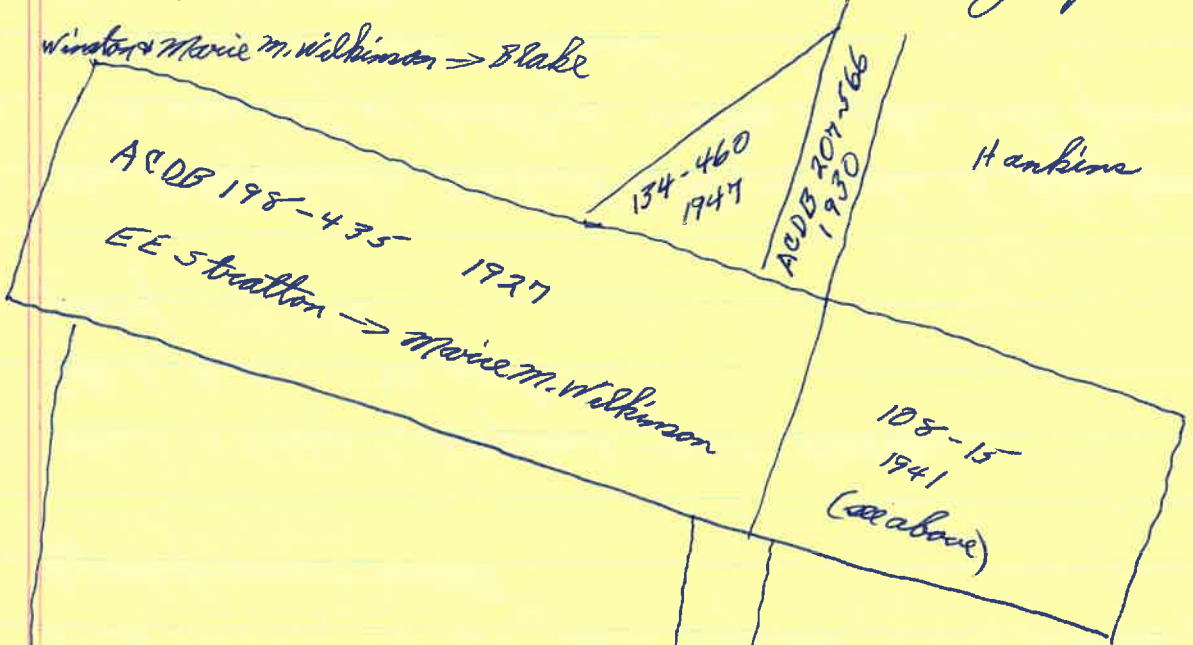 Winston & Marie M. Wilkinson → Blake
ACDB 198-435 1927
EE Stratton → Marie M. Wilkinson
134-460
1947
ACDB 207-566
1930
Hankins
108-15
1941
(see above)